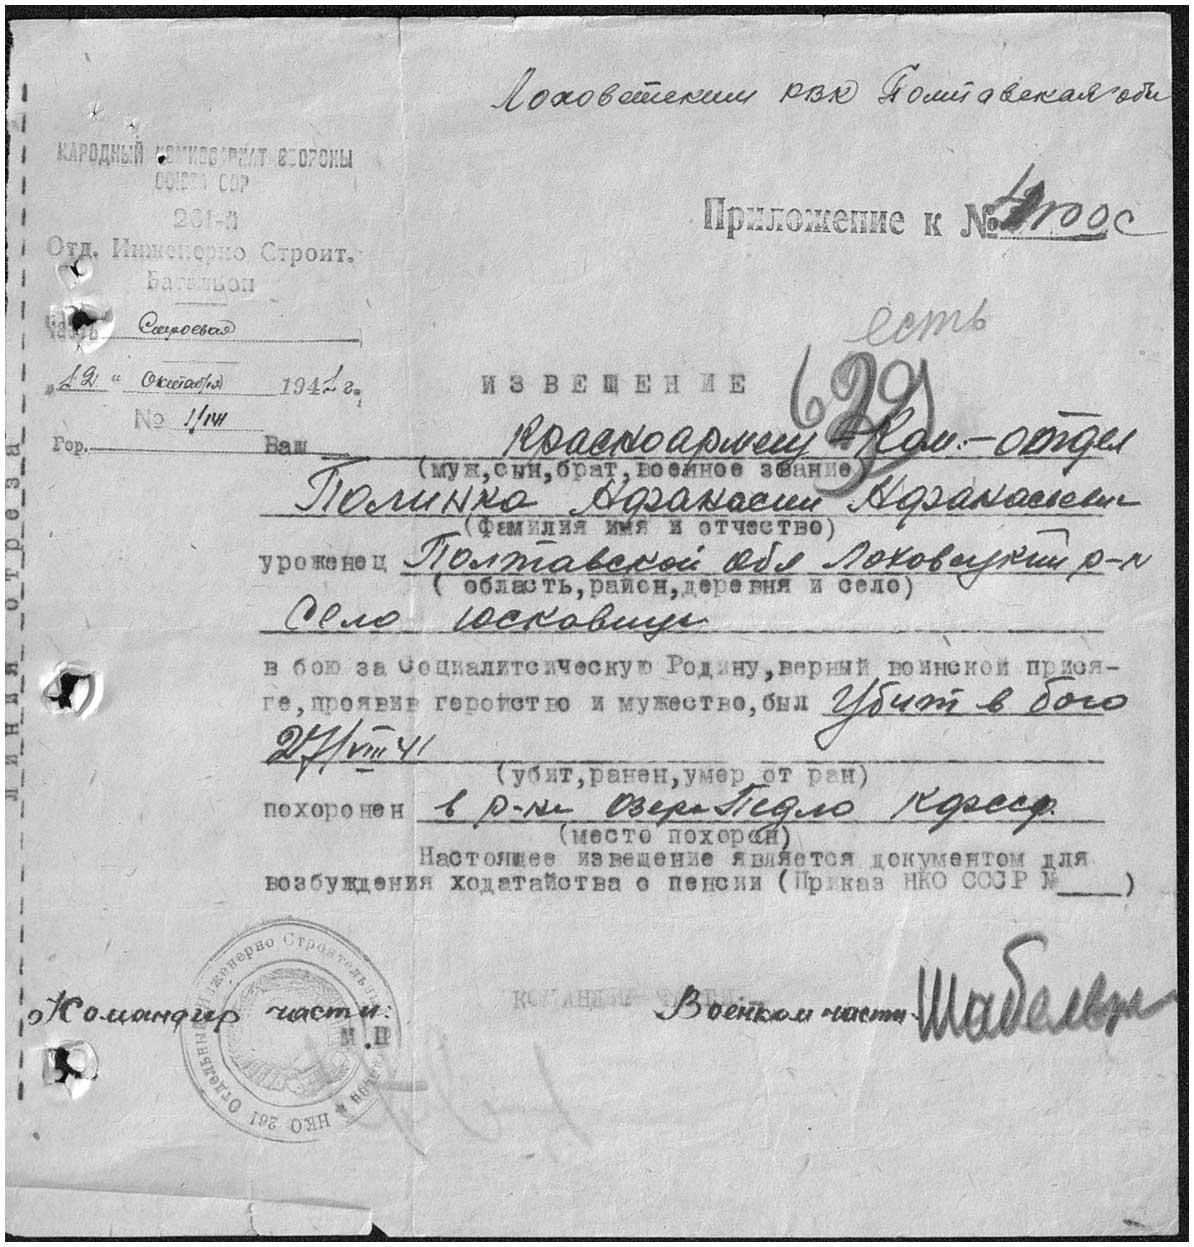 Лоховетским РВК Полтавская обл
НАРОДНЫЙ КОМИССАРИАТ ОБОРОНЫ
СОЮЗА ССР
261-й
Отд. Инженерно Строит.
Батальон
Часть Строевая
„12“ Октября 1941 г.
№ 1/141
Гор.
Приложение к №
есть
629
ИЗВЕЩЕНИЕ
Ваш Красноармеец Ком.-отдел
(муж,сын,брат,военное звание)
Полинко Афанасии Афанасьевич
(Фамилия имя и отчество)
уроженец Полтавской Обл Лоховецкий р-н
( область,район,деревня и село)
Село Юсковцы
в бою за Социалитсическую Родину,верный воинской прися-
ге,проявив геройство и мужество,был Убит в бою
27/VIII 41
(убит,ранен,умер от ран)
похоронен в р-не Озера Педло КФССР.
(место похорон)
Настоящее извещение является документом для
возбуждения ходатайства о пенсии (Приказ НКО СССР №____)
Командир части:
М.П
КОМАНДИР ЧАСТИ
Военком части
Отдельный Инженерно Строительный Батальон ★ НКО 261
линия отреза